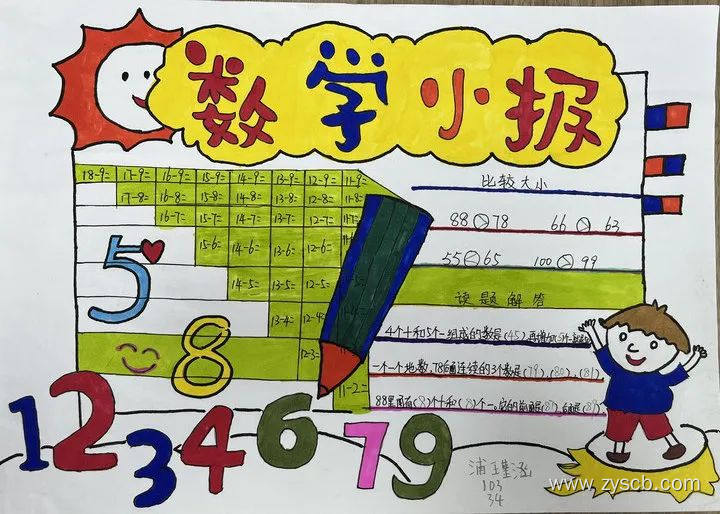 数学小报
18-9= 17-9= 16-9= 15-9= 14-9= 13-9= 12-9= 11-9=
17-8= 16-8= 15-8= 14-8= 13-8= 12-8= 11-8=
16-7= 15-7= 14-7= 13-7= 12-7= 11-7=
15-6= 14-6= 13-6= 12-6=
14-5= 13-5= 12-5=
13-4= 12-4=
12-3=
11-2=
比较大小
88 > 78 66 > 63
55 < 65 100 > 99
读题解答
4个十和5个一组成的数是(45)
一个一个地数,78后面连续的3个数是(79)、(80)、(81)
88里面有(8)个十和(8)个一
5
8
1 2 3 4 6 7 9
103
34
www.zyscb.com